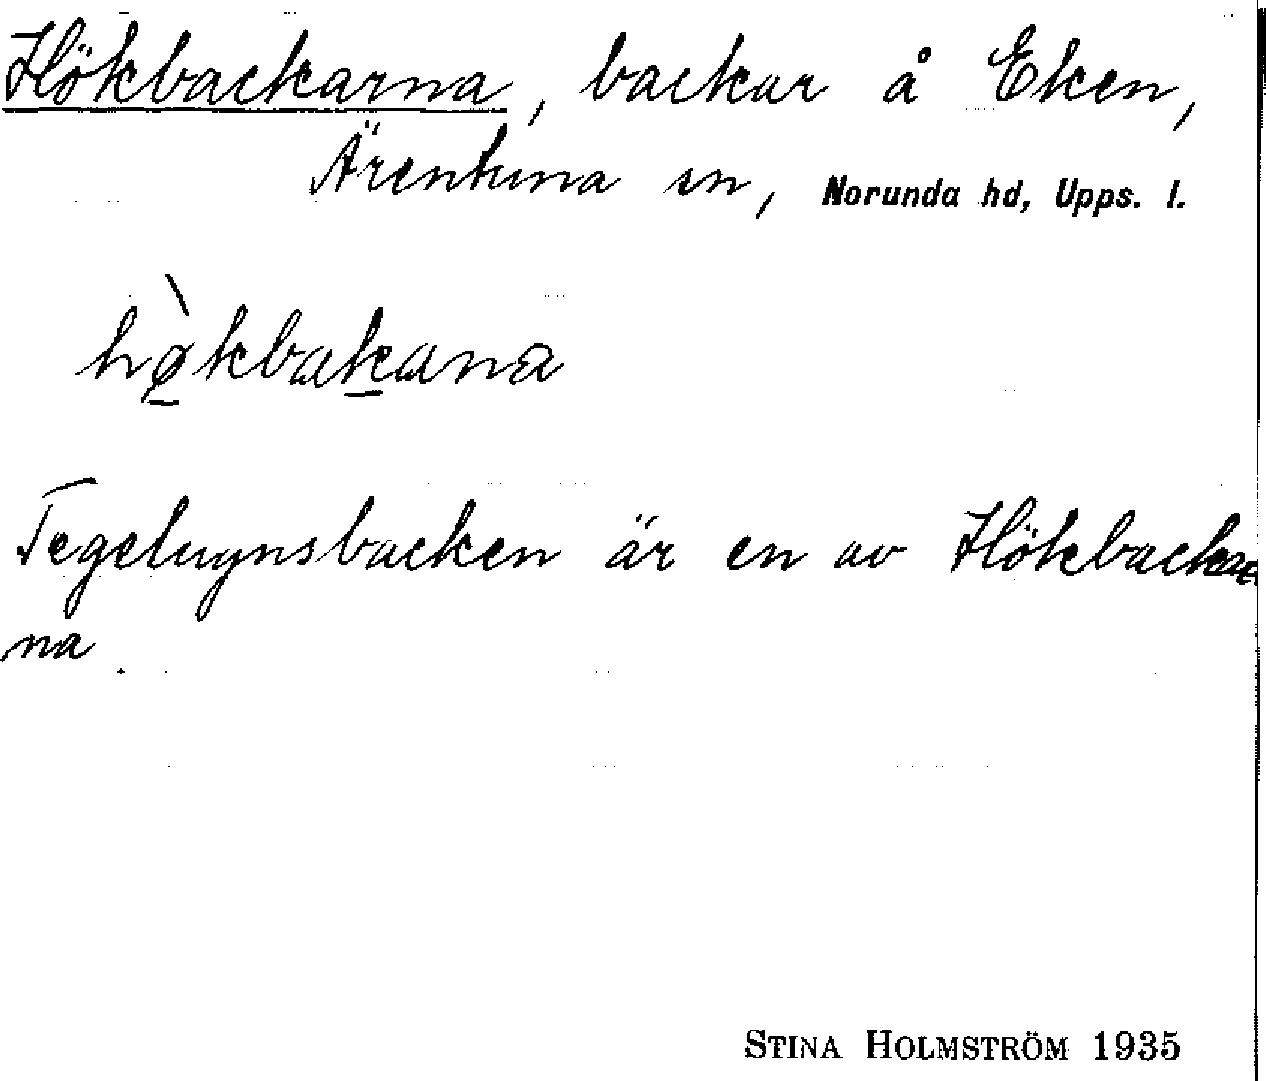 Hökbackarna, backar å Eken,
Ärentuna sn, Norunda hd, Upps. l.
hø̀kbakana
Tegelugnsbacken är en av Hökbackar
na
STINA HOLMSTRÖM 1935